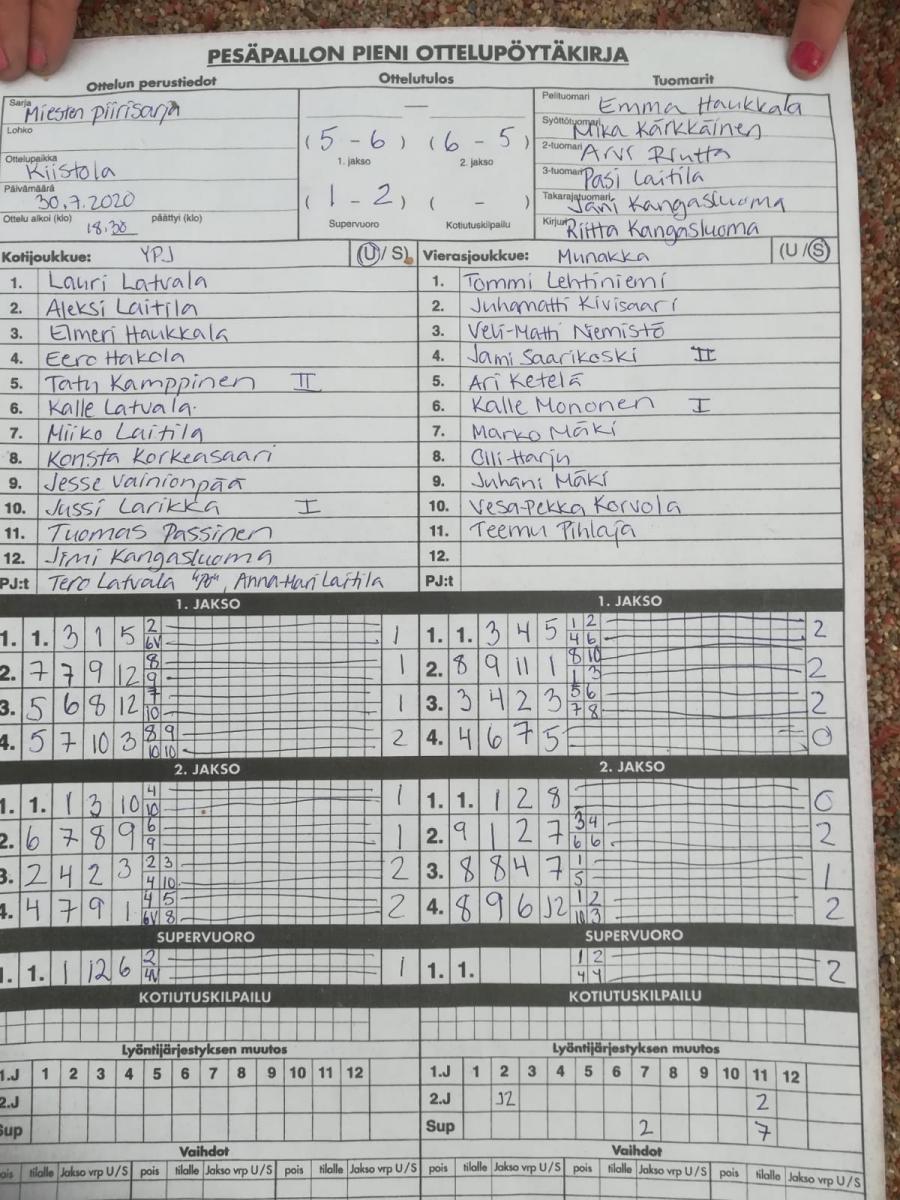 PESÄPALLON PIENI OTTELUPÖYTÄKIRJA
Ottelun perustiedot
Ottelutulos
Tuomarit
Sarja Miesten piirisarja
Lohko
Ottelupaikka Kiistola
Päivämäärä 30.7.2020
Ottelu alkoi (klo) 18.30 päättyi (klo)
—
(5 - 6) (6 - 5)
1. jakso 2. jakso
(1 - 2) ( - )
Supervuoro Kotiutuskilpailu
Pelituomari Emma Haukkala
Syöttötuomari Mika Kärkkäinen
2-tuomari Arvi
3-tuomari Pasi Laitila
Takarajatuomari Jani Kangasluoma
Kirjuri Riitta Kangasluoma
Kotijoukkue: YPJ (U / S)
1. Lauri Latvala
2. Aleksi Laitila
3. Elmeri Haukkala
4. Eero Hakola
5. Tatu Kamppinen II
6. Kalle Latvala
7. Miiko Laitila
8. Konsta Korkeasaari
9. Jesse Vainionpää
10. Jussi Larikka I
11. Tuomas Passinen
12. Jimi Kangasluoma
PJ:t Tero Latvala "PO", Anna-Mari Laitila
Vierasjoukkue: Munakka (U / S)
1. Tommi Lehtiniemi
2. Juhamatti Kivisaari
3. Veli-Matti Niemistö
4. Jami Saarikoski II
5. Ari Ketelä
6. Kalle Mononen I
7. Marko Mäki
8. Olli Harju
9. Juhani Mäki
10. Vesa-Pekka Korvola
11. Teemu Pihlaja
12.
PJ:t
1. JAKSO
1. 1. 3 1 5 2 6V 1
2. 7 7 9 12 8 9 1
3. 5 6 8 12 7 10 1
4. 5 7 10 3 8 9 10 10 2
1. JAKSO
1. 1. 3 4 5 1 2 4 6 2
2. 8 9 11 1 8 10 1 3 2
3. 3 4 2 3 5 6 7 8 2
4. 4 6 7 5 0
2. JAKSO
1. 1. 1 3 10 4 10 1
2. 6 7 8 9 6 9 1
3. 2 4 2 3 2 3 4 10 2
4. 4 7 9 1 4 5 6V 8 2
2. JAKSO
1. 1. 1 2 8 0
2. 9 1 2 7 3 4 6 6 2
3. 8 8 4 7 1 5 1
4. 8 9 6 12 1 2 10 3 2
SUPERVUORO
1. 1. 1 12 6 2 4V 1
SUPERVUORO
1. 1. 1 2 4 4 2
KOTIUTUSKILPAILU
KOTIUTUSKILPAILU
Lyöntijärjestyksen muutos
1.J 1 2 3 4 5 6 7 8 9 10 11 12
2.J
Sup
Lyöntijärjestyksen muutos
1.J 1 2 3 4 5 6 7 8 9 10 11 12
2.J 12 2
Sup 2 7
Vaihdot
pois tilalle Jakso vrp U/S pois tilalle Jakso vrp U/S pois tilalle Jakso vrp U/S
Vaihdot
pois tilalle Jakso vrp U/S pois tilalle Jakso vrp U/S pois tilalle Jakso vrp U/S